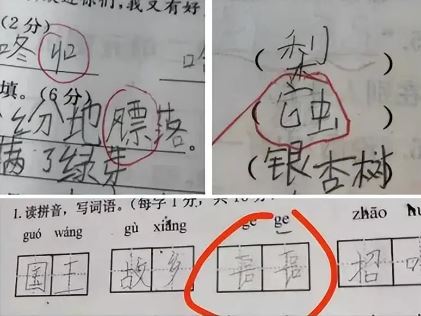 你们,我又有好
(2分)
咚
填。(6分)
地膘落。
满了绿芽
(梨)
(它虫)
(银杏树)
1.读拼音,写词语。(每字1分,共
guó wáng gù xiāng gē ge zhāo
国王 故乡 招